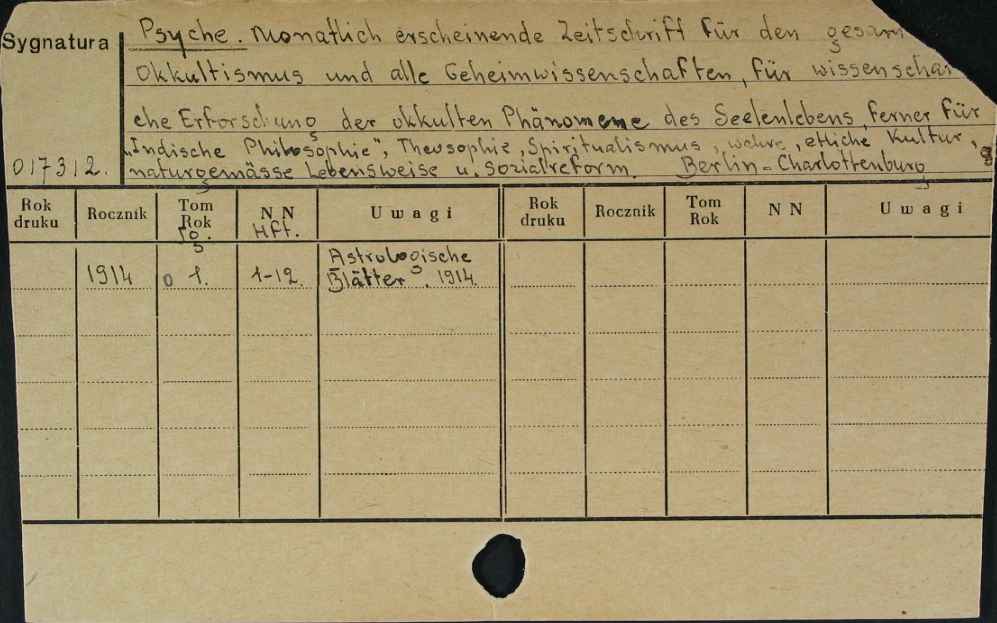 Sygnatura
Psyche. Monatlich erscheinende Zeitschrift für den gesam
Okkultismus und alle Geheimwissenschaften, für wissenschaf
che Erforschung der okkulten Phänomene des Seelenlebens, ferner für
"Indische Philosophie", Theosophie, Spiritualismus, wahre, etliche Kultur,
017312. naturgemässe Lebensweise u. Sozialreform. Berlin-Charlottenburg
Rok druku Rocznik Tom Rok NN Uwagi Rok druku Rocznik Tom Rok NN Uwagi
Hft.
Astrologische
1914 1. 1-12. Blätter. 1914.